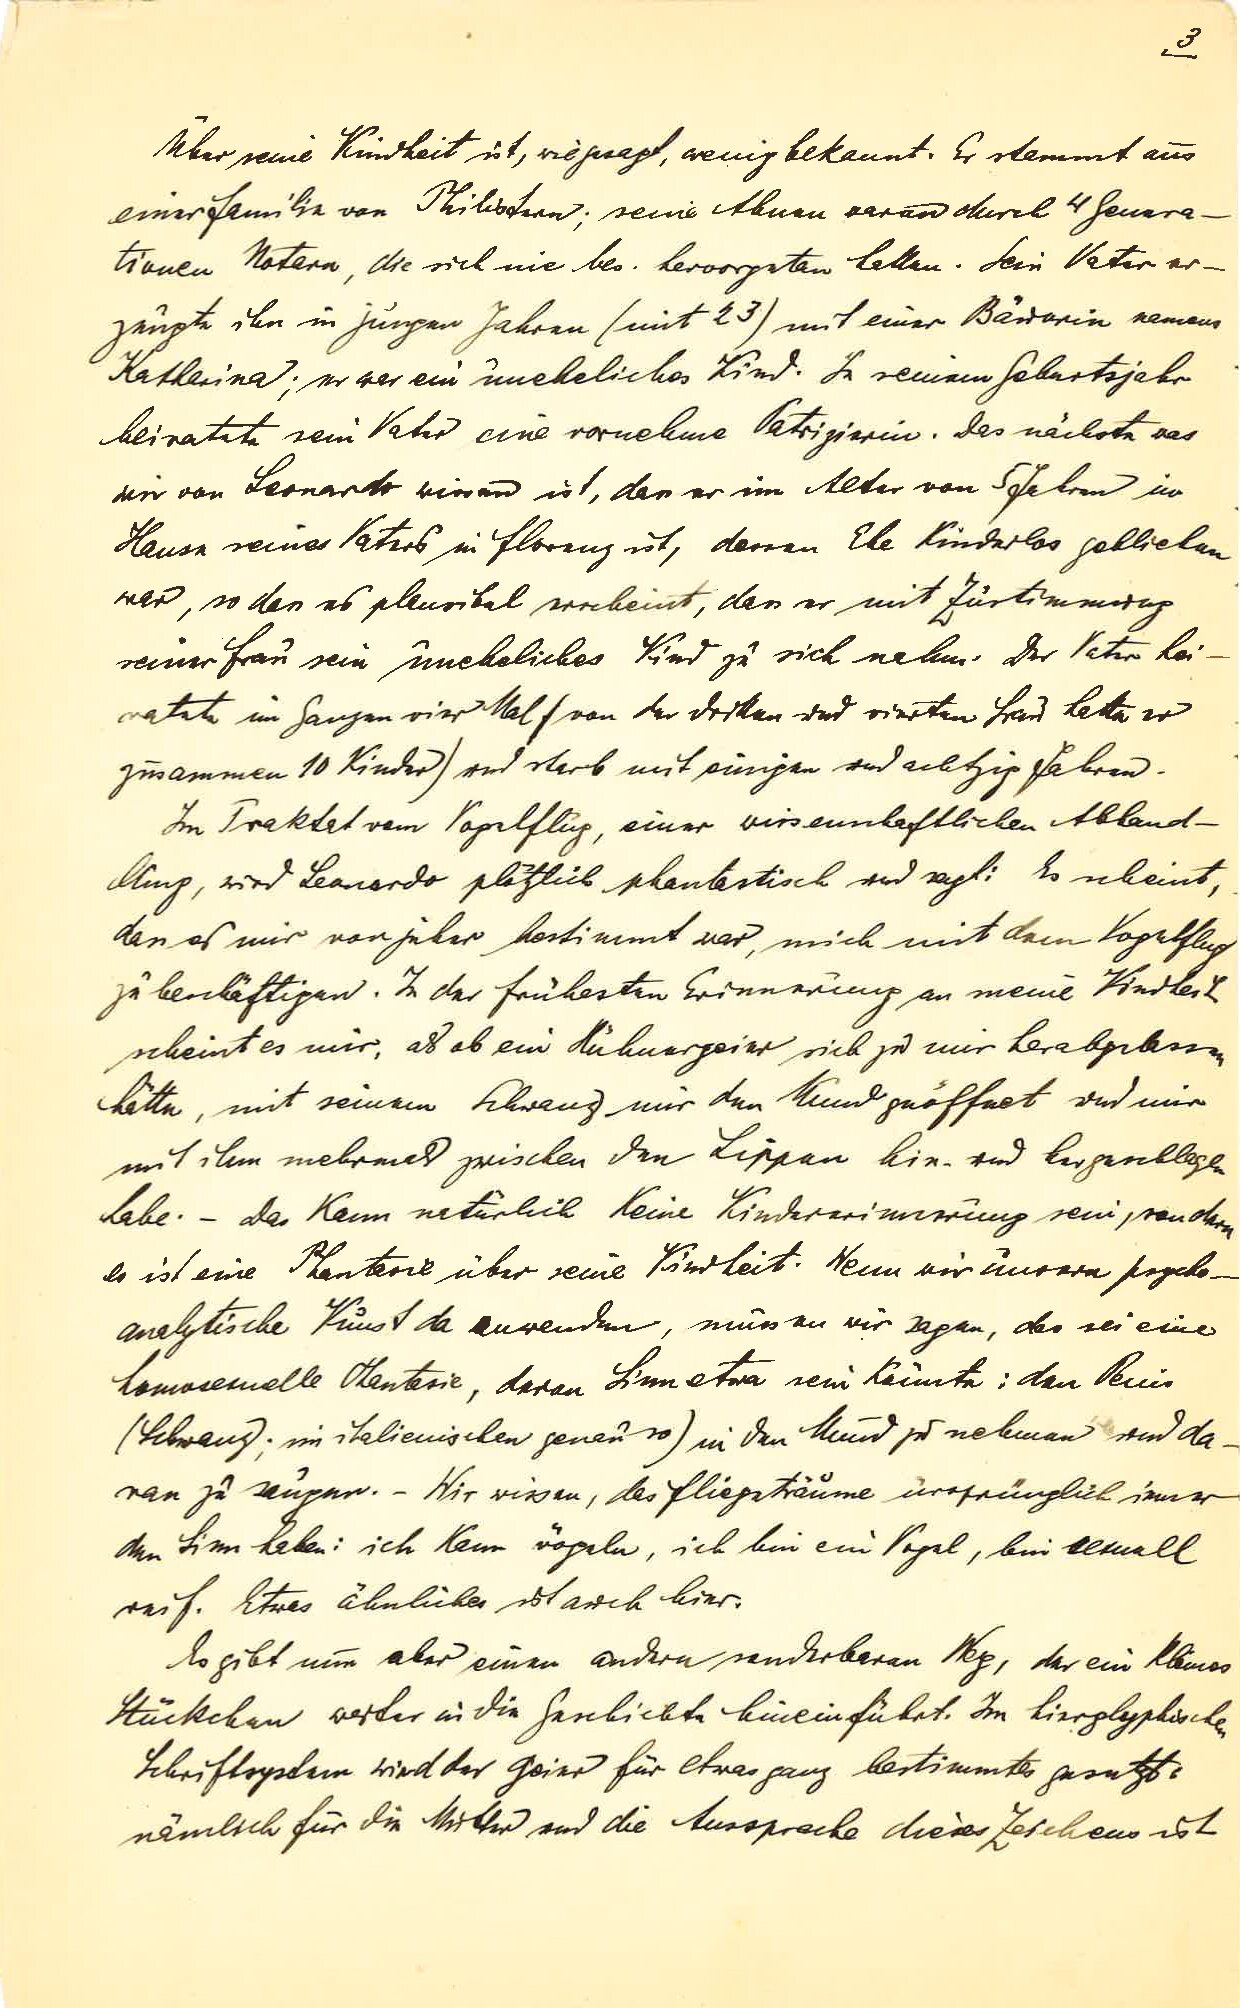 3
Über seine Kindheit ist, wie gesagt, wenig bekannt. Er stammt aus
einer Familie von Philistern; seine Ahnen waren durch 4 Genera-
tionen Notare, die sich nie bes. hervorgetan hatten. Sein Vater er-
zeugte ihn in jungen Jahren (mit 23) mit einer Bäuerin namens
Katherina; er war ein uneheliches Kind. In seinem Geburtsjahr
heiratete sein Vater eine vornehme Patrizierin. Das nächste was
wir von Leonardo wissen ist, dass er im Alter von 5 Jahren im
Hause seines Vaters in Florenz ist, dessen Ehe kinderlos geblieben
war, so dass es plausibel erscheint, dass er mit Zustimmung
seiner Frau sein uneheliches Kind zu sich nahm. Der Vater hei-
ratete im Ganzen vier Mal (von der dritten und vierten Frau hatte er
zusammen 10 Kinder) und starb mit einigen und achtzig Jahren.
Im Traktat vom Vogelflug, einer wissenschaftlichen Abhand-
lung, wird Leonardo plötzlich phantastisch und sagt: Es scheint,
dass es mir von jeher bestimmt war, mich mit dem Vogelflug
zu beschäftigen. In der frühesten Erinnerung an meine Kindheit
scheint es mir, als ob ein Hühnergeier sich zu mir herabgelassen
hätte, mit seinem Schwanz mir den Mund geöffnet und mir
mit ihm mehrmals zwischen den Lippen hin- und hergeschlagen
habe. - Das kann natürlich keine Kindererinnerung sein, sondern
es ist eine Phantasie über seine Kindheit. Wenn wir unsere psycho-
analytische Kunst da anwenden, müssen wir sagen, das sei eine
homosexuelle Phantasie, deren Sinn etwa sein könnte: den Penis
(Schwanz; im italienischen genau so) in den Mund zu nehmen und da-
ran zu saugen. - Wir wissen, dass Fliegeträume ursprünglich immer
den Sinn haben: ich kann vögeln, ich bin ein Vogel, bin sexuell
reif. Etwas ähnliches ist auch hier.
Es gibt nun aber einen andern sonderbaren Weg, der ein kleines
Stückchen weiter in die Geschichte hineinführt. Im hieroglyphischen
Schriftsystem wird der Geier für etwas ganz bestimmtes gesetzt:
nämlich für die Mutter und die Aussprache dieses Zeichens ist